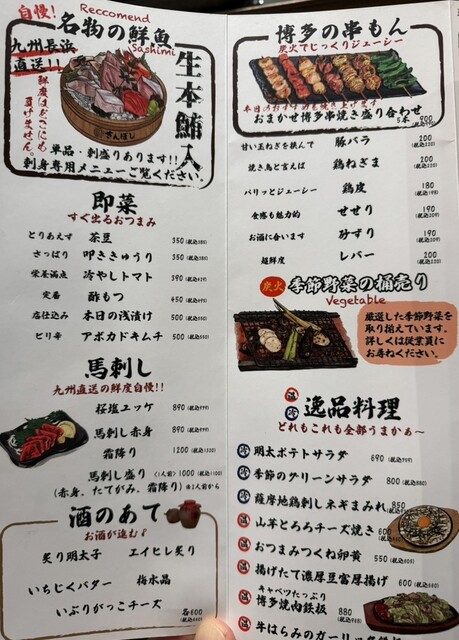 自慢!
Reccomend
名物の鮮魚
Sashimi
九州長浜
直送!!
鮮度はどこにも
負けません。
生本鮪入
さんぽし
単品・刺盛りあります!!
刺身専用メニューご覧ください。
即菜
すぐ出るおつまみ
とりあえず 茶豆 350(税込385)
さっぱり 叩ききゅうり 350(税込385)
栄養満点 冷やしトマト 390(税込429)
定番 酢もつ 450(税込495)
店仕込み 本日の浅漬け 500(税込550)
ピリ辛 アボカドキムチ 500(税込550)
馬刺し
九州直送の鮮度自慢!!
桜塩ユッケ 890(税込979)
馬刺し赤身 890(税込979)
霜降り 1200(税込1320)
馬刺し盛り(1人前)1000(税込1100)
(赤身、たてがみ、霜降り)※2人前から
酒のあて
お酒が進む♪
炙り明太子 エイヒレ炙り
いちじくバター 梅水晶
いぶりがっこチーズ 各600
(税込660)
博多の串もん
炭火でじっくりジューシー
本日のおすすめを焼き上げます
おまかせ博多串焼き盛り合わせ
5本 900
甘い玉ねぎを挟んで 豚バラ 200
(税込220)
焼き鳥と言えば 鶏ねぎま 200
(税込220)
パリッとジューシー 鶏皮 180
(税込198)
食感も魅力的 せせり 190
(税込209)
お酒に合います 砂ずり 190
(税込209)
超鮮度 レバー 200
(税込220)
炭火 季節野菜の桶売り
Vegetable
厳選した季節野菜を
取り揃えています。
詳しくは従業員に
お尋ねください。
温
冷
逸品料理
どれもこれも全部うまかぁ〜
冷 明太ポテトサラダ 690(税込759)
冷 季節のグリーンサラダ 800(税込880)
冷 薩摩地鶏刺しネギまみれ 850
温 山芋とろろチーズ焼き 600
温 おつまみつくね卵黄 550(税込605)
温 揚げたて濃厚豆富厚揚げ 600(税込660)
キャベツたっぷり
温 博多焼肉鉄板 880
(税込968)
温 牛はらみのガーリック